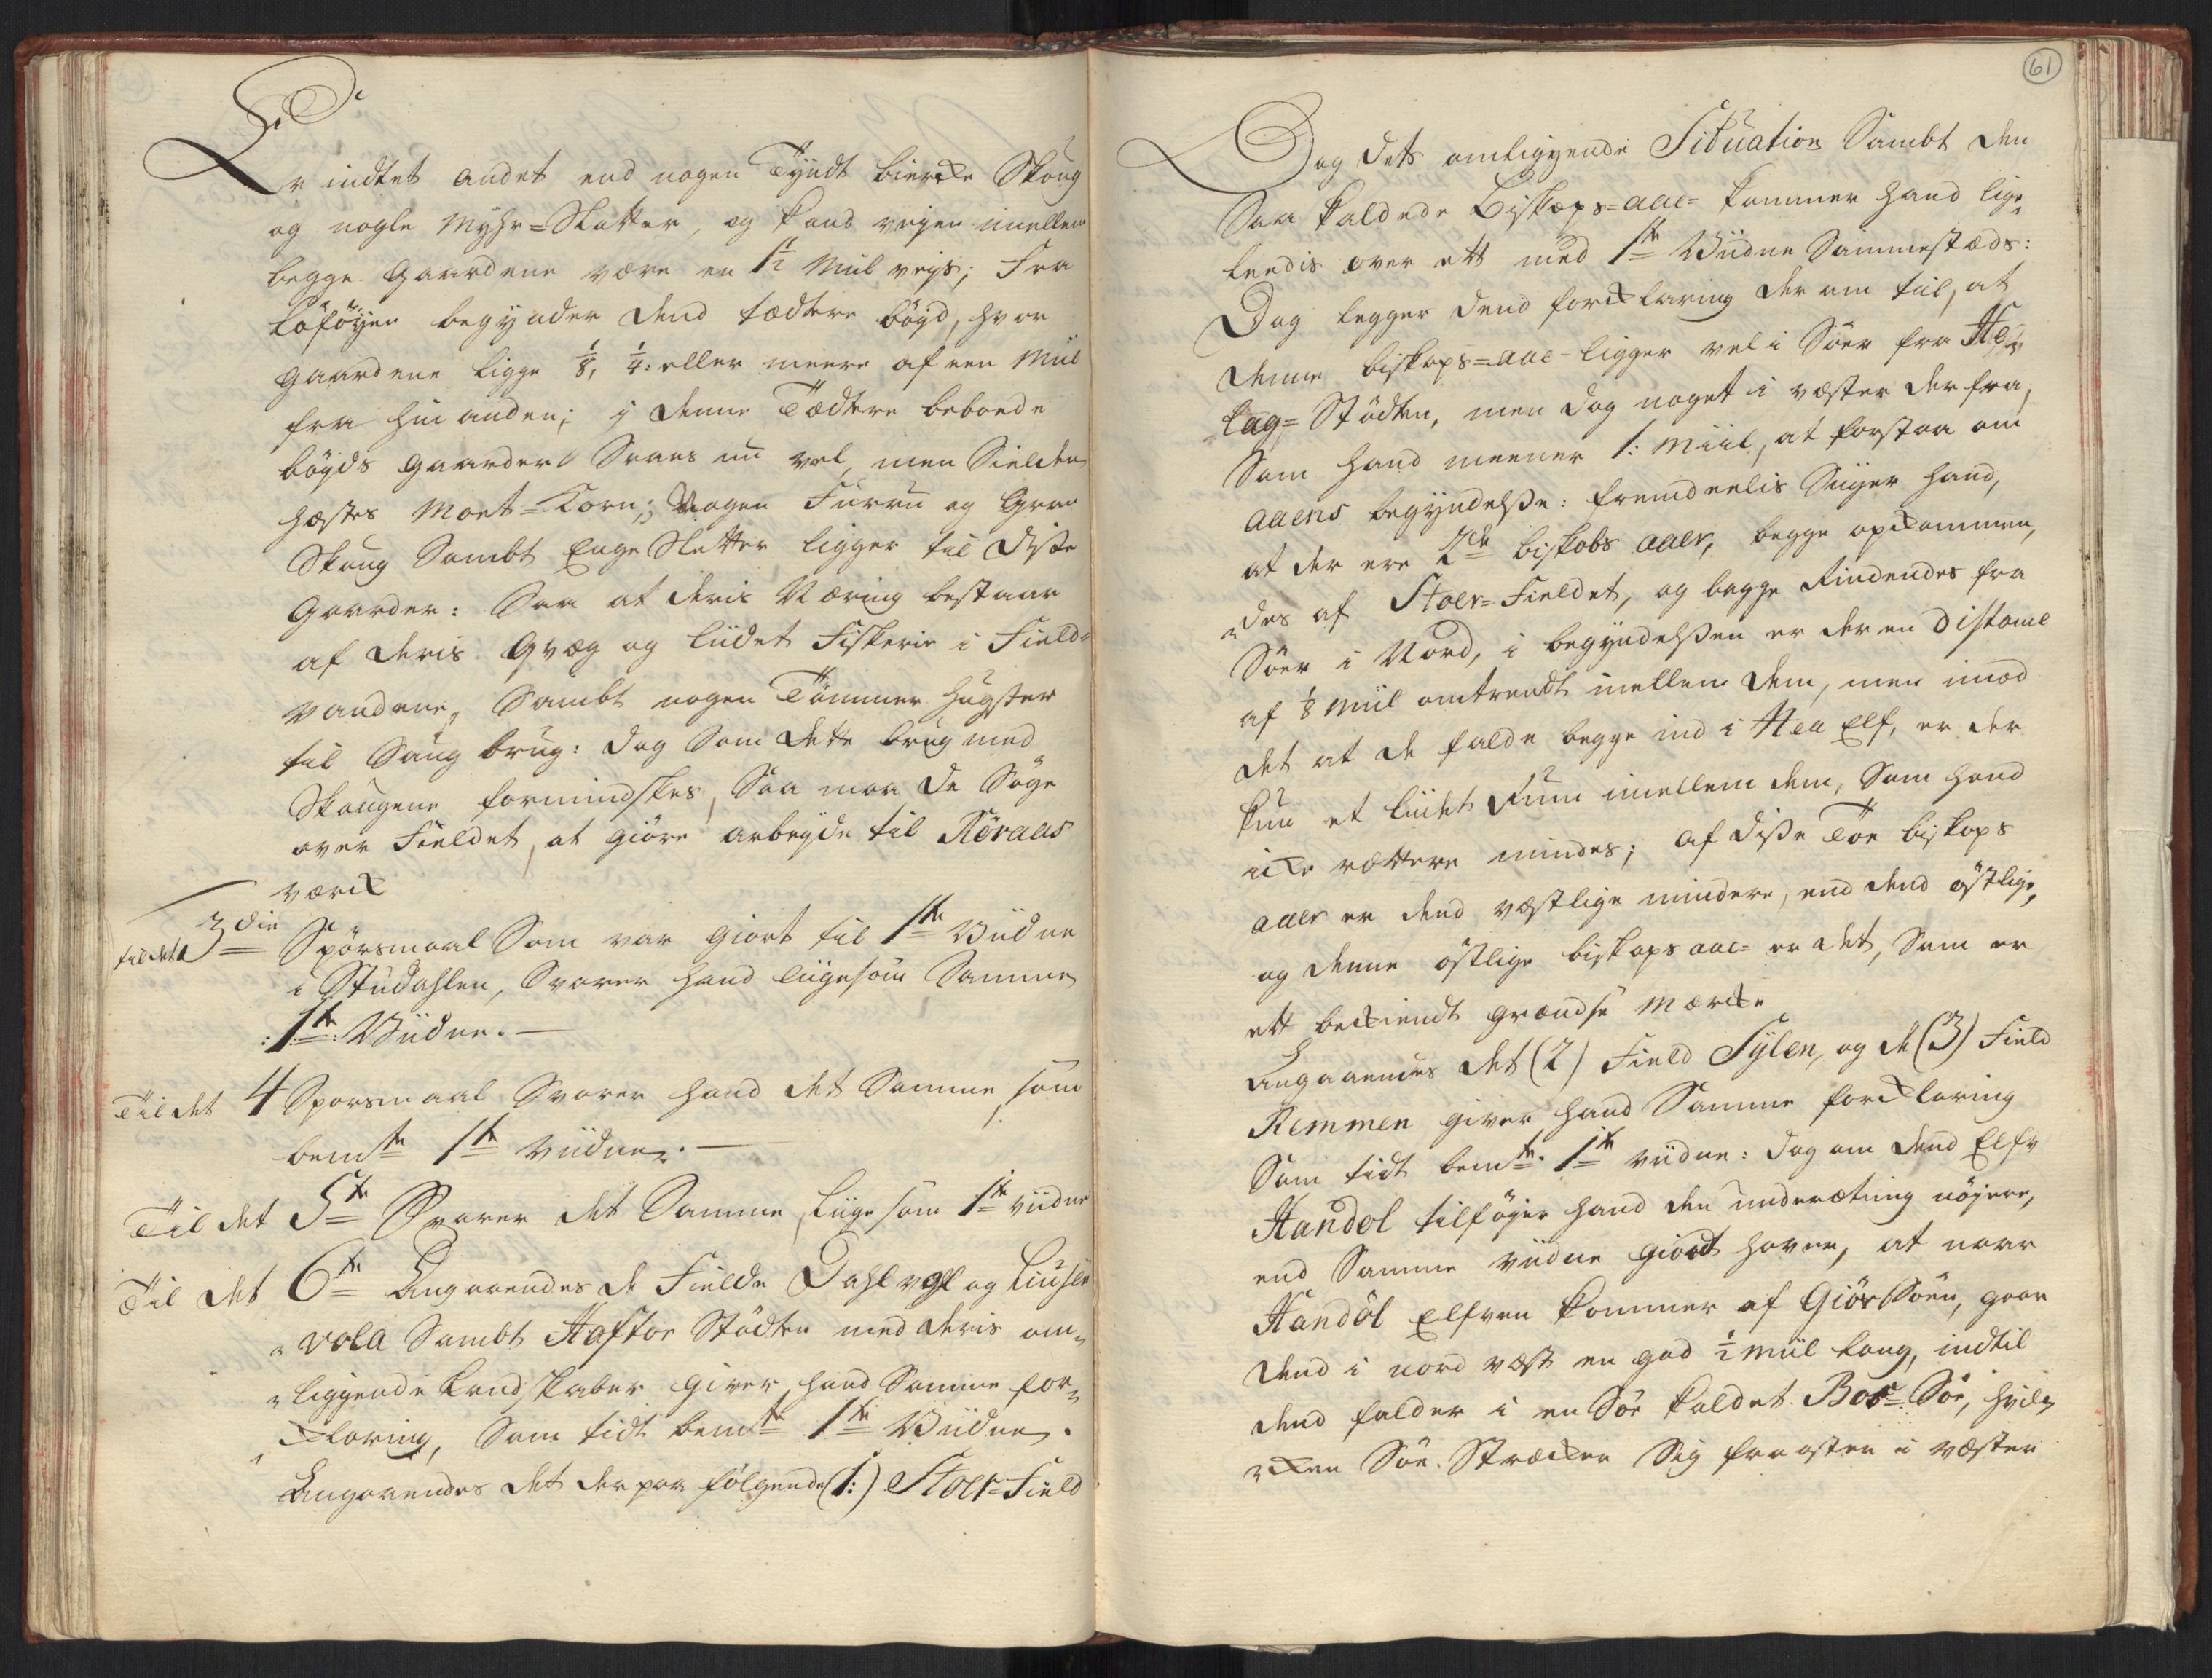 Er indtet andet end nogen Tyndt biercke Skoug
og nogle Myhr=Slatter, og kand veyen imellem
begge gaardene være en 1½ Miil veys; Fra
Löföyen begynder dend tædtere böyd, hvor
gaardene ligge 1/8, 1/4: eller meere af een Miil
fra hin anden; i denne Tædtere beboede
böyds gaarder Saaes nu vel, men Sielden
hæstes Moet=Korn; Nogen Furru og Gran
Skoug Sambt Enge Sletter ligger til disse
Gaarder: Saa at deris Næring bestaar
af deris Qvæg og liidet Fiskerie i Field=
vandene, Sambt nogen Tömmer hugster
til Saug brug: dog Som dette brug med
Skougene formindskes, Saa maa de Söge
over Fieldet, at giöre arbeyde til Röraas
værck
til det 3die Spörsmaal Som var giort til 1te Viidne
i Studahlen, Svarer hand liigesom Samme
:1te: Viidne.—
Til det 4 Sporsmaal Svarer hand det Samme, som
bemte 1te viidne.—
Til det 5te Svarer det Samme, liige som 1te viidne
Til det 6te Angaaendes de Fielde Dahlvohl og Liusne
vola Sambt Haftor Stödten med deris om=
liggende Landskaber giver hand Samme for=
cklaring, Som tidt bemte 1te Viidne.
Angaaendes det derpaa følgende (1:) Stoer=Field
61
Dog dets omliggende Situation Sambt den
Saa kaldede Biskops=aae= kommer hand lige
leedis over ett med 1te Viidne Sammestæds:
Dog legger dend forcklaring der om till, at
denne biskops=aae= ligger vel i Söer fra Hel=
lag=Stödten, men dog noget i væster der fra,
Som hand meener 1: Miil, at forstaa om
aaens begyndelsse: fremdeelis Siiger hand,
at der ere 2de biskobs aaer, begge opckommen,
des af Stoer=Fieldet, og begge Rindendes fra
Söer i Nord, i begyndelssen er der en Distance
af 1/8 Miil omtrendt mellem dem, men imod
det at de falde begge ind i Hea Elf, er der
kun et liidet Rum imellem dem, Som hand
icke rættere mindes; af disse Toe biskops
aaer er dend væstlige mindere, end dend östlige,
og denne östlige biskops aae= er det, Som er
ett beckiendt Grændse Mærcke
Angaaendes det (2) Field Sylen, og de (3) Field
Remmen giver hand Samme forcklaring
Som tidt bemte: 1te viidne: dog om dend Elfv
Handöl tilföyer hand den underætning nöyere,
end Samme viidne giordt haver, at naar
Handöl Elfven kommer af Giör Söen, gaar
dend i nord væst en god ½ Miil lang, indtil
dend falder i en Söe kaldet Boe=Söe, hvil=
cken Söe Stræcker Sig fra östen i væsten